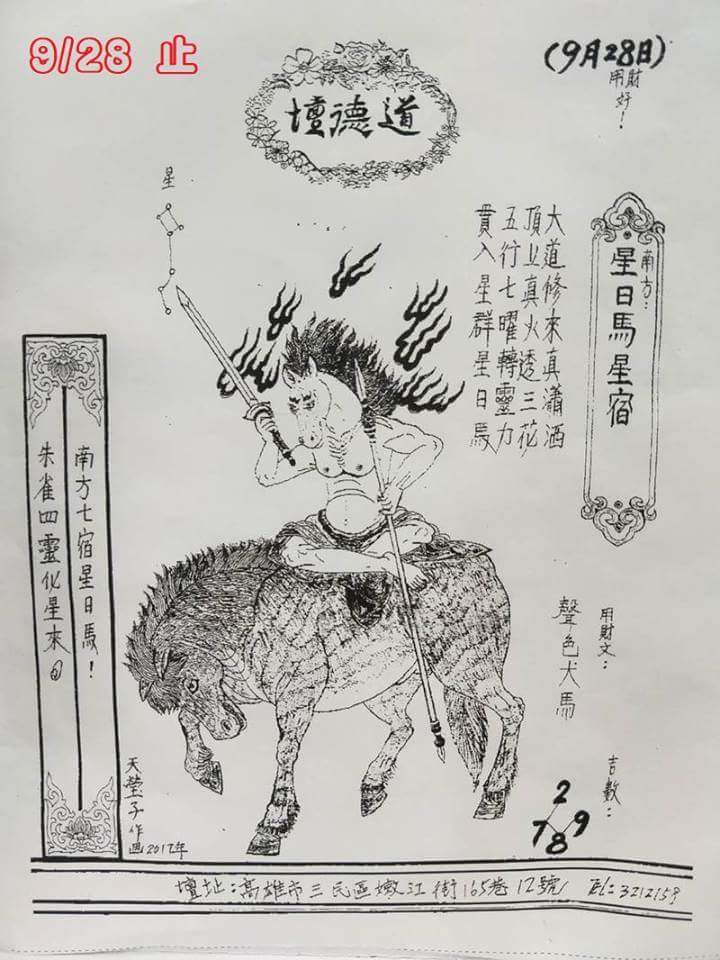 9/28 止
(9月28日)
財用好！
道德壇
星
南方：
星日馬星宿
大道修來真瀟洒
頂上真火透三花
五行七曜轉靈力
貫入星群星日馬
南方七宿星日馬！
朱雀四靈化星來。
用財文：
聲色犬馬
吉數：
2
7 8 9
天瑩子作画2017年
壇址：高雄市三民區嫩江街165巷12號 TEL：3212159